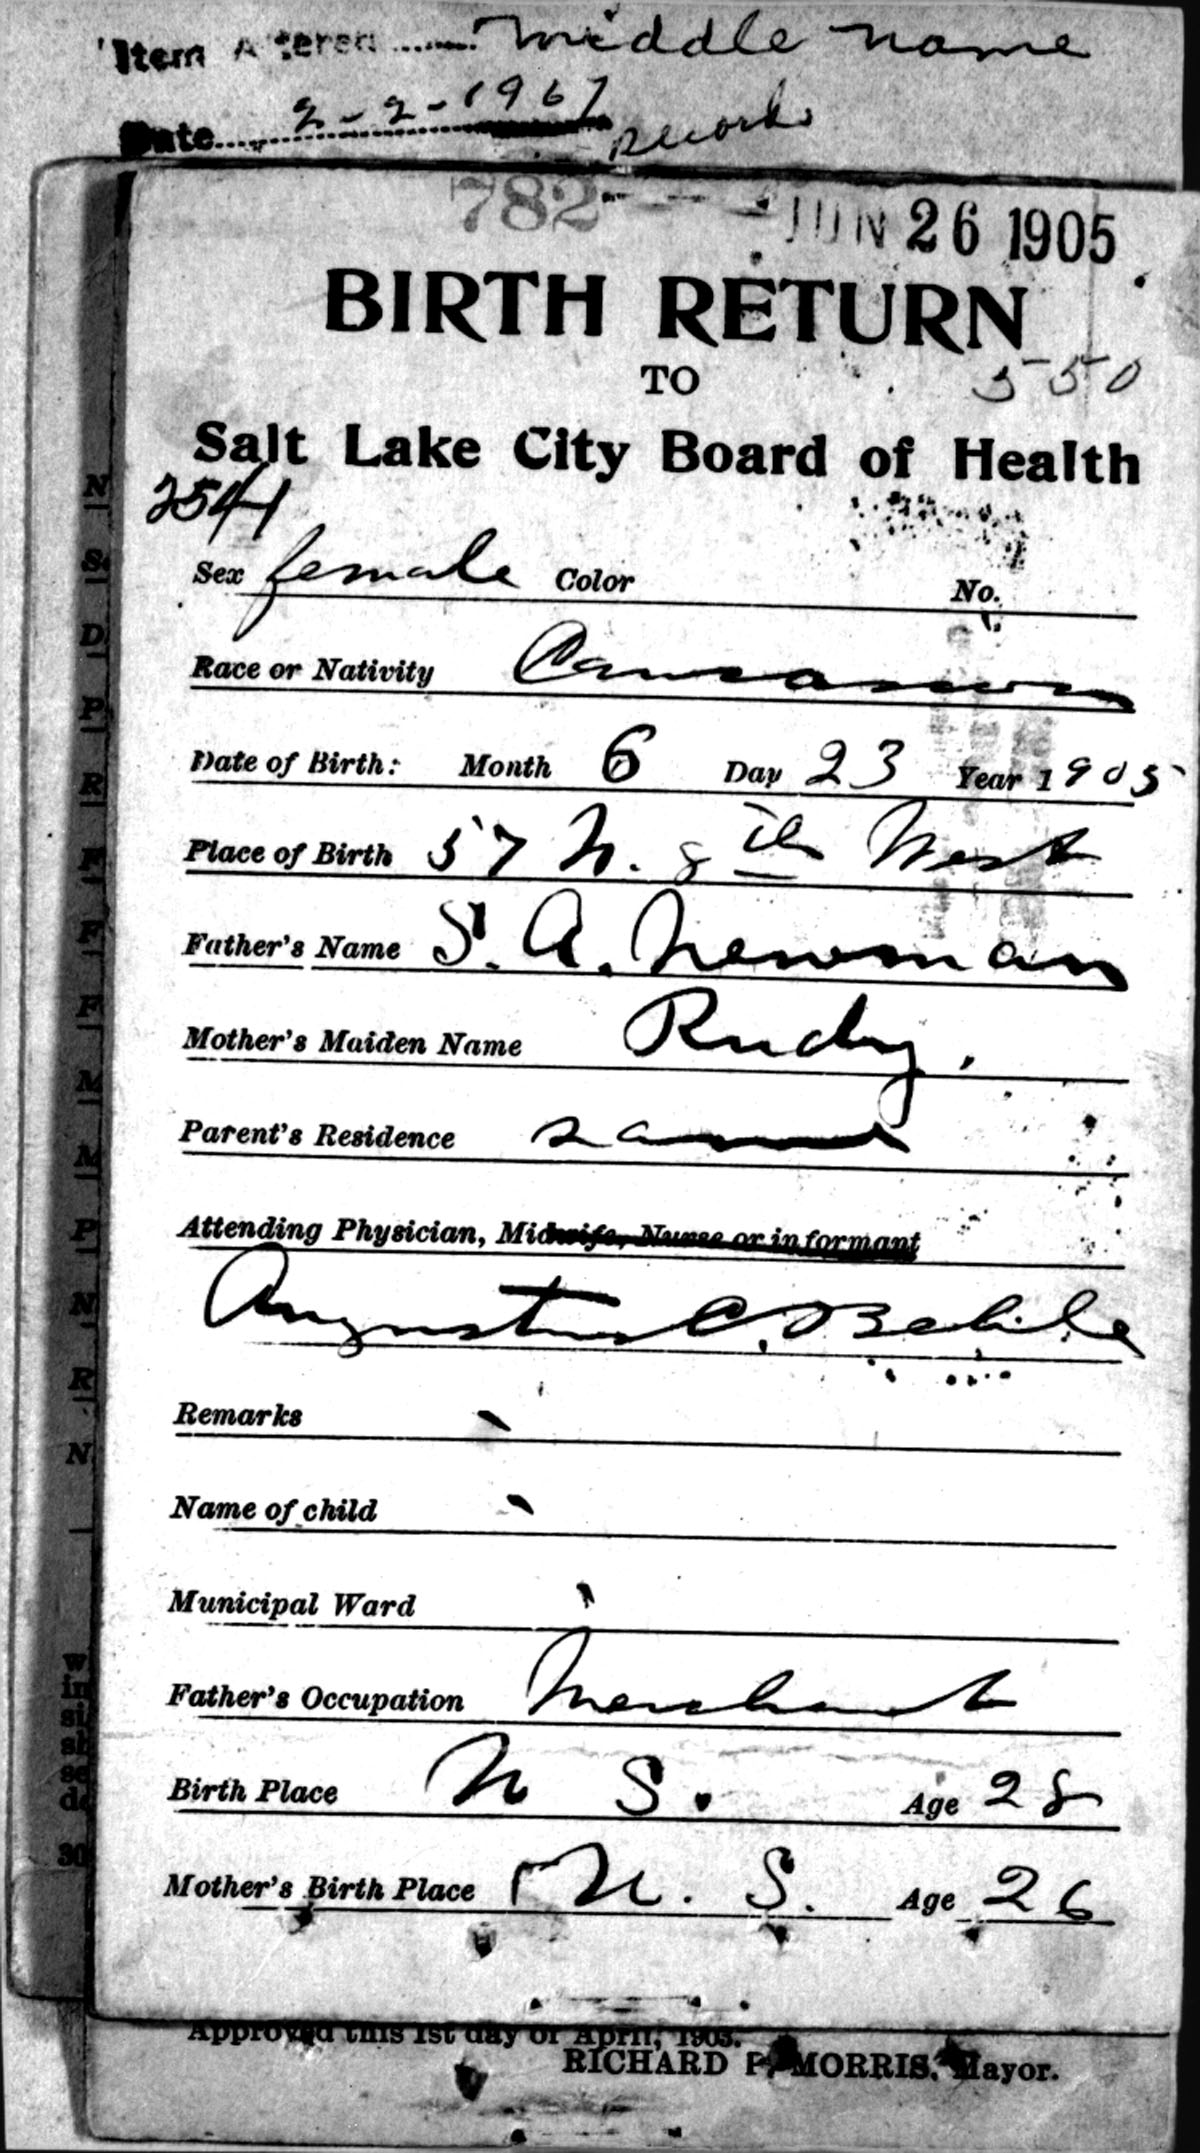 Item Altered ........ middle name
Date.... 2-2-1967
records
782 JUN 26 1905
BIRTH RETURN
TO
550
Salt Lake City Board of Health
2541
Sex female Color No.
Race or Nativity Caucasian
Date of Birth: Month 6 Day 23 Year 1905
Place of Birth 57 N. 8th West
Father's Name S. A. Newman
Mother's Maiden Name Rudy.
Parent's Residence same
Attending Physician, Midwife, Nurse or informant
Augustus C. Behle
Remarks
Name of child
Municipal Ward
Father's Occupation Merchant
Birth Place U S. Age 28
Mother's Birth Place U. S. Age 26
Approved this 1st day of April, 1903.
RICHARD P. MORRIS, Mayor.